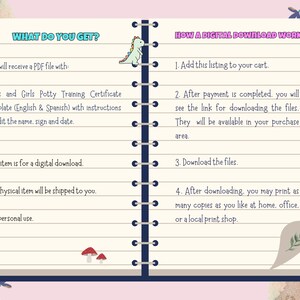 WHAT DO YOU GET?
will receive a PDF file with:
s and Girls Potty Training Certificate
plate (English & Spanish) with instructions
dit the name, sign and date.
item is for a digital download.
physical item will be shipped to you.
personal use.
HOW A DIGITAL DOWNLOAD WORK
1. Add this listing to your cart.
2. After payment is completed, you will
see the link for downloading the files.
They will be available in your purchase
area.
3. Download the files.
4. After downloading, you may print as
many copies as you like at home, office,
or a local print shop.